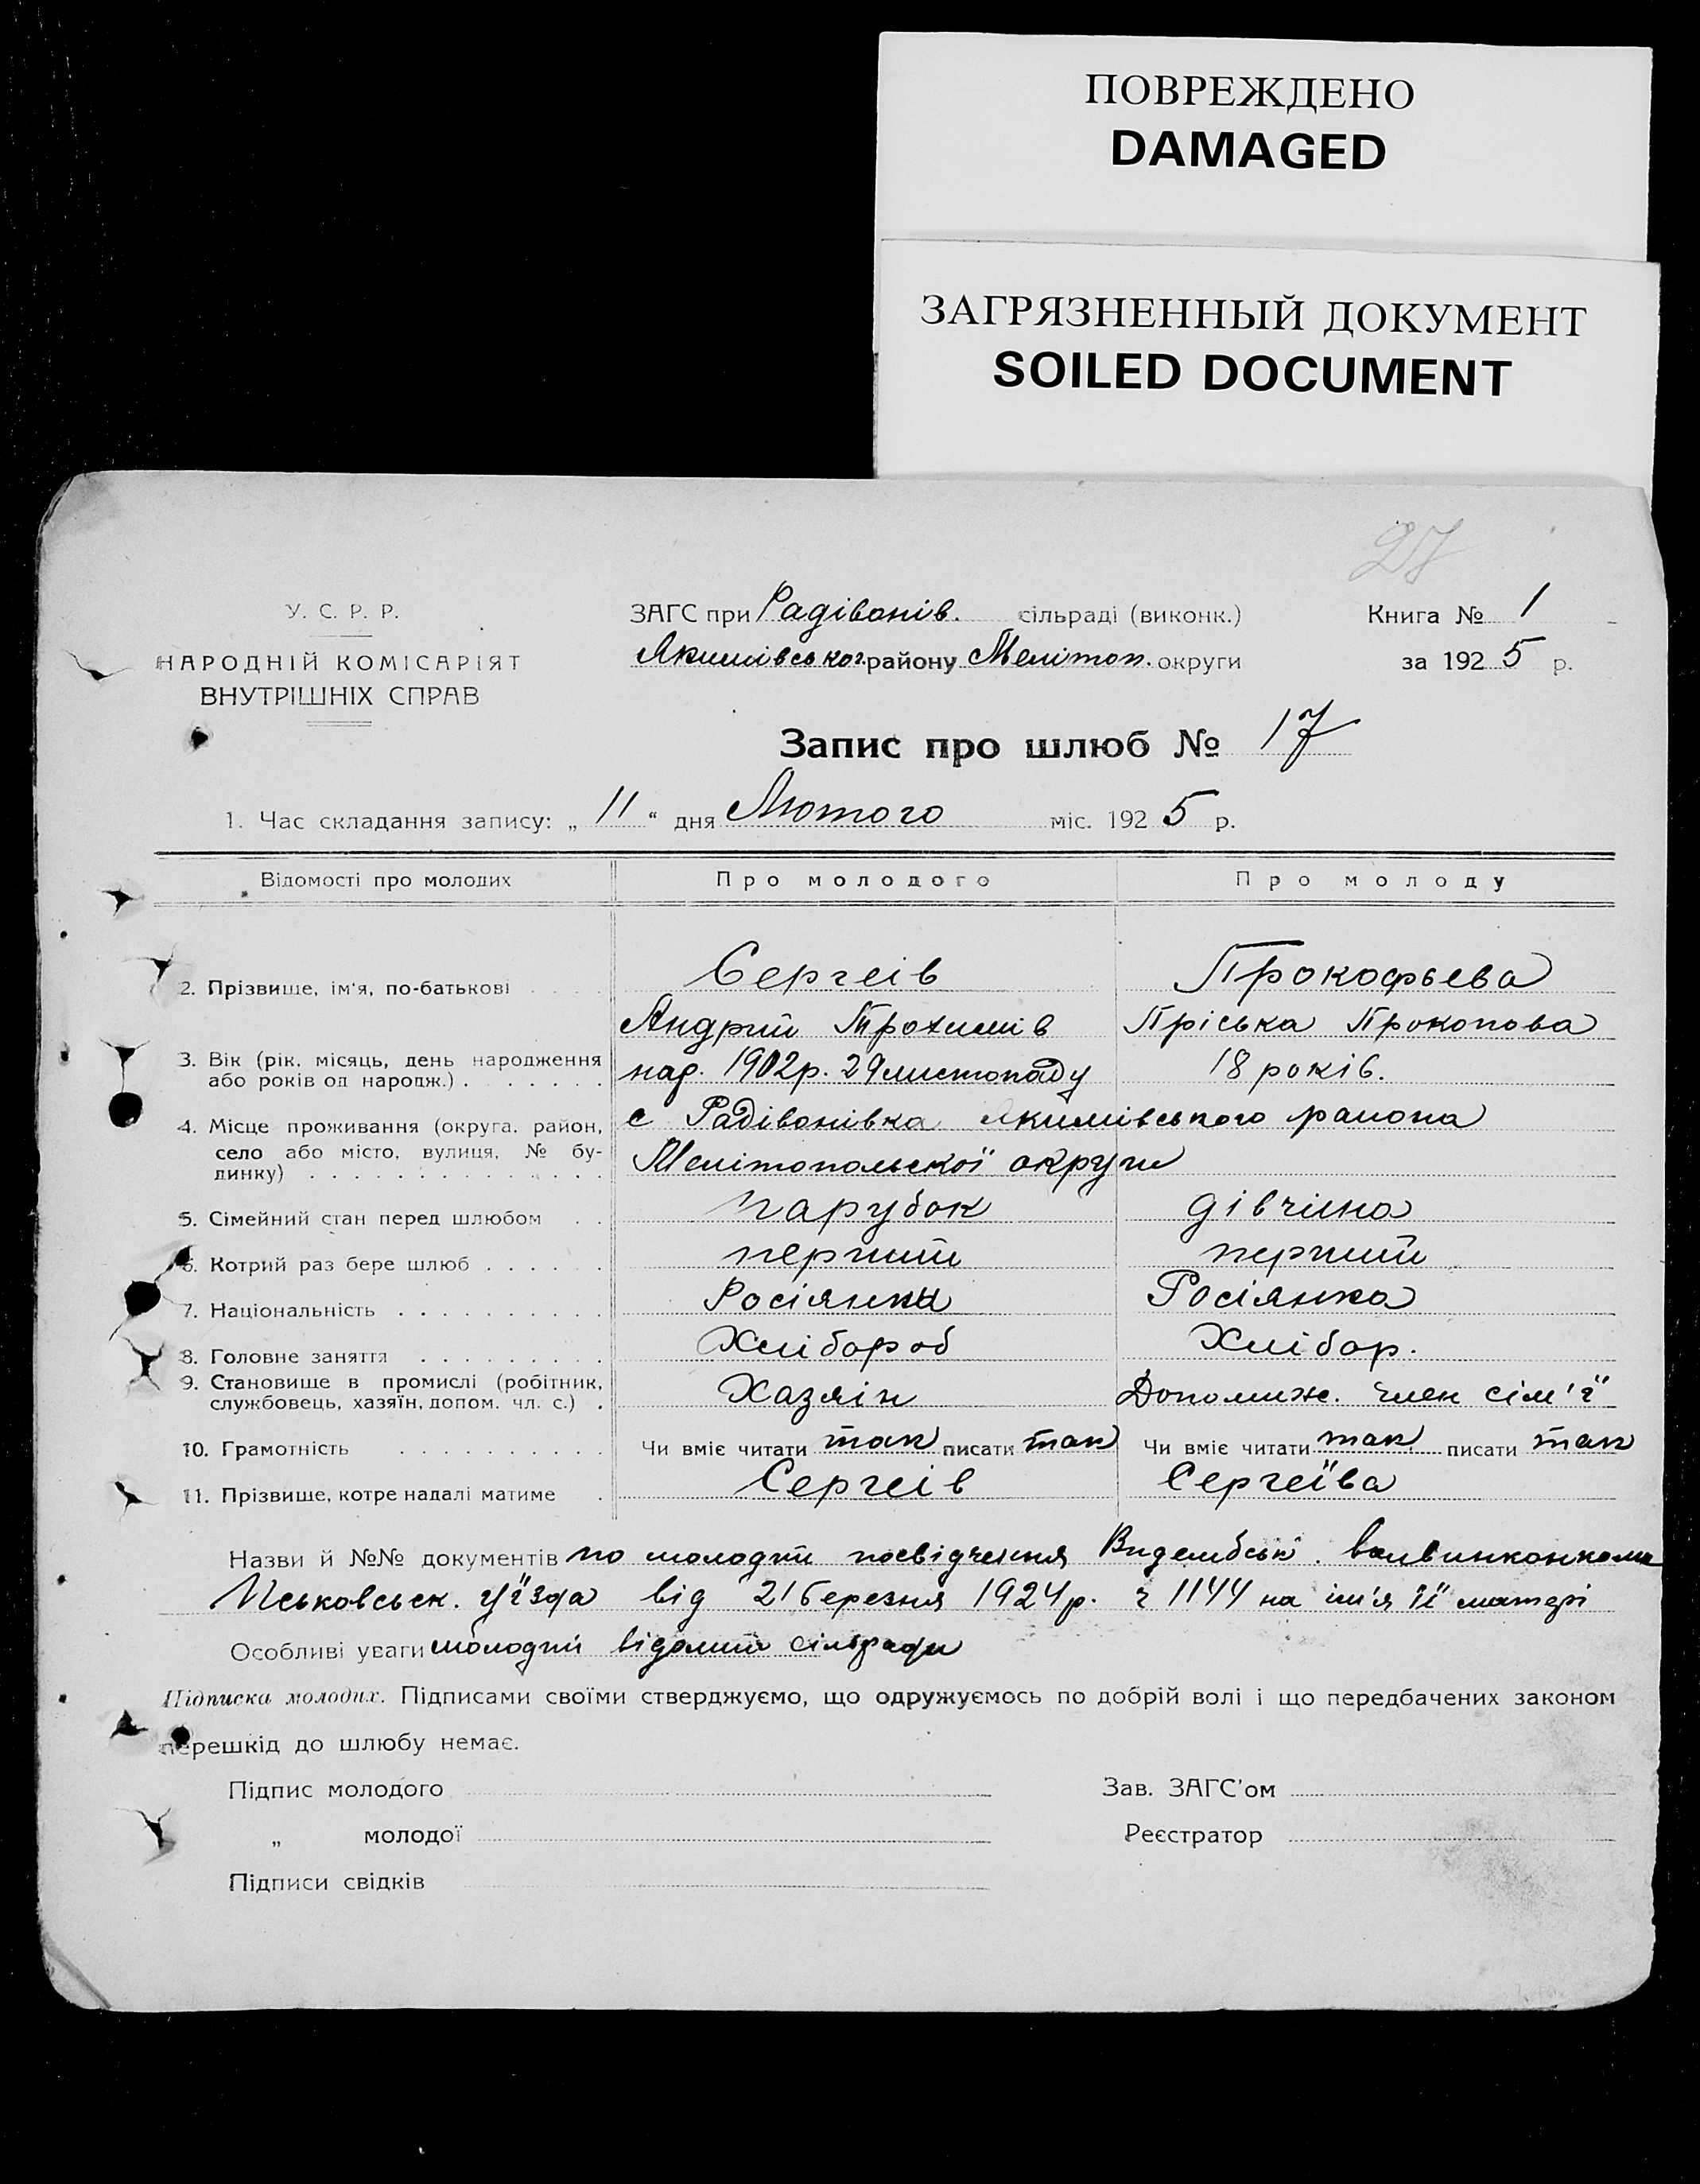 ПОВРЕЖДЕНО
DAMAGED
ЗАГРЯЗНЕННЫЙ ДОКУМЕНТ
SOILED DOCUMENT
27
У. С. Р. Р.
НАРОДНІЙ КОМІСАРІЯТ
ВНУТРІШНІХ СПРАВ
ЗАГС при Радівонів. сільраді (виконк.)
Якимівськог. району Мелітоп. округи
Книга № 1
за 1925 р.
Запис про шлюб № 17
1. Час складання запису: „ 11 “ дня Лютого міс. 1925 р.
Відомості про молодих Про молодого Про молоду
2. Прізвище, ім'я, по-батькові . . . . Сергеів Прокофьева
Андрий Трохимів Пріська Прокопова
3. Вік (рік, місяць, день народження або років од народж.) . . . . . . . нар. 1902р. 29 листопаду 18 років.
4. Місце проживання (округа, район, село або місто, вулиця, № будинку) . . . . . . . . . . . . . с Радівонівка Якимівського района
Мелітопольскоі округи
5. Сімейний стан перед шлюбом . . парубок дівчина
6. Котрий раз бере шлюб . . . . . . перший перший
7. Національність . . . . . . . . . . Росіянин Росіянка
8. Головне заняття . . . . . . . . . Хлібороб Хлібор.
9. Становище в промислі (робітник, службовець, хазяїн, допом. чл. с.) . Хазяін Допомиж. член сім'ї
10. Грамотність . . . . . . . . . . Чи вміє читати так писати так Чи вміє читати так писати так
11. Прізвище, котре надалі матиме . Сергеів Сергеїва
Назви й №№ документів по молодий посвідчення
уїзда від 21 березня 1924р. ч 1144 на ім'я її матері
Особливі уваги молодий відомий сільради
Підписка молодих. Підписами своїми стверджуємо, що одружуємось по добрій волі і що передбачених законом
перешкід до шлюбу немає.
Підпис молодого Зав. ЗАГС'ом
„ молодої Реєстратор
Підписи свідків